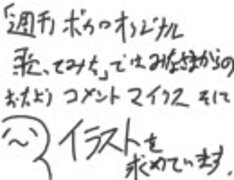 「週刊ボカロオリジナル
歌ってみた」ではみなさまからの
おたより コメント マイリス そして
イラストを
求めています。